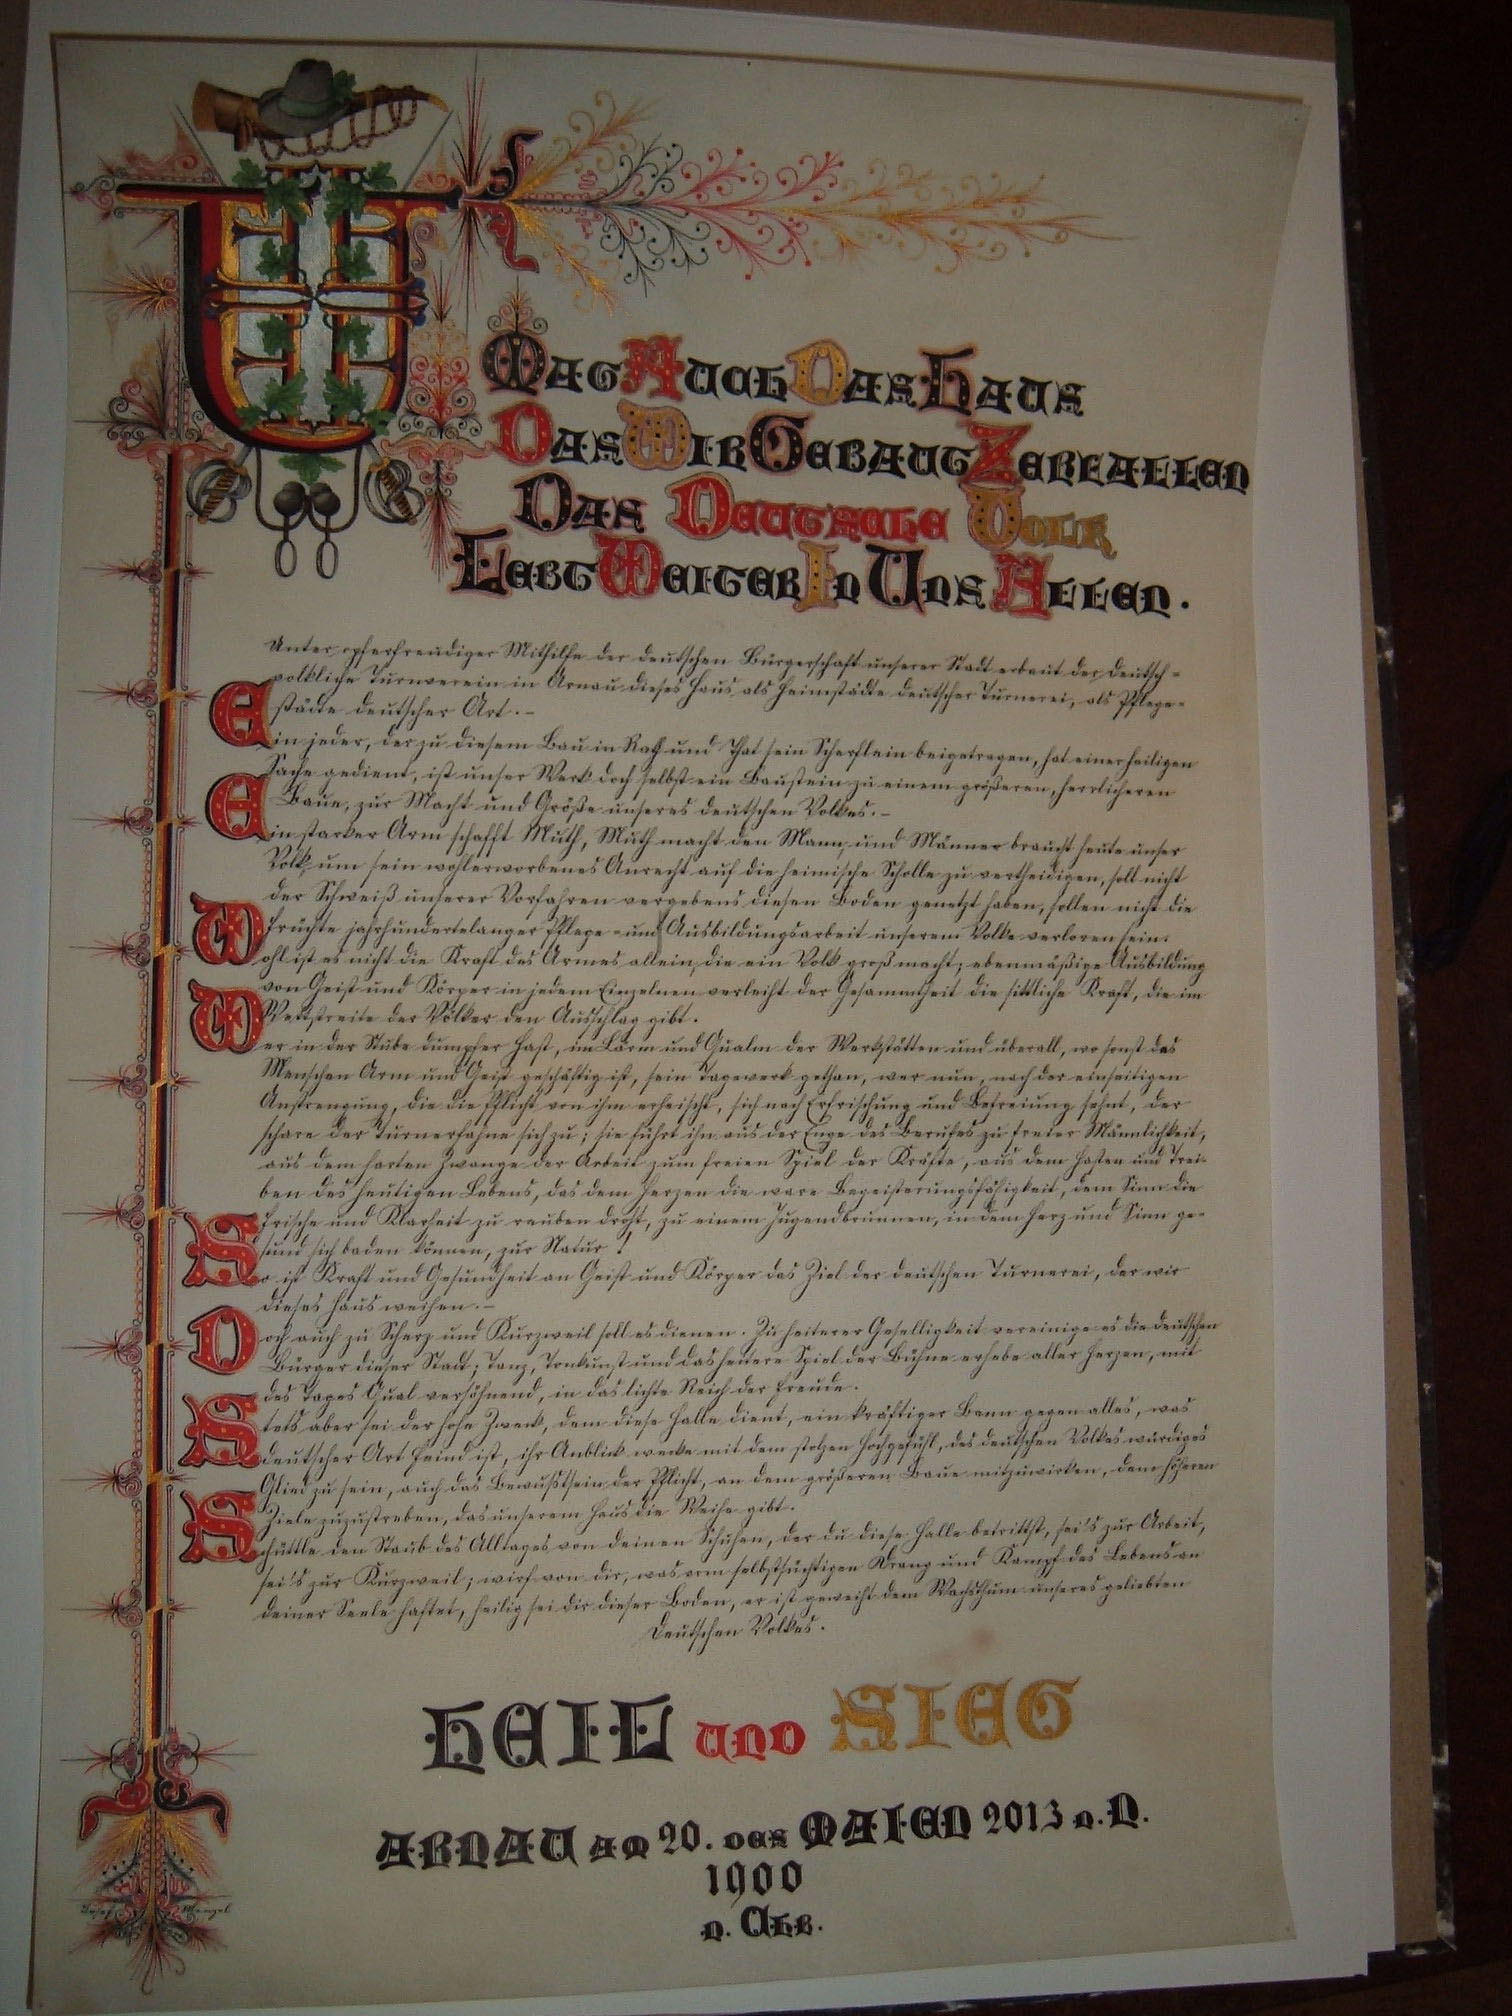 Mag Auch Das Haus
Das Wir Gebaut Zerfallen
Das Deutsche Volk
Lebt Weiter In Uns Allen.
Unter opferfreudiger Mithilfe der deutschen Bürgerschaft unserer Stadt erbaut der deutsch-
volkliche Turnverein in Arnau dieses Haus als Heimstädte deutscher Turnerei, als Pflege-
städte deutscher Art.-
Ein jeder, der zu diesem Bau in Rath und That sein Scherflein beigetragen, hat einer heiligen
Sache gedient, ist unser Werk doch selbst ein Baustein zu einem größeren, herrlicheren
Baue, zur Macht und Größe unseres deutschen Volkes.-
Ein starker Arm schafft Muth, Muth macht den Mann, und Männer braucht heute unser
Volk, um sein wohlerworbenes Anrecht auf die heimische Scholle zu vertheidigen, soll nicht
der Schweiß unserer Vorfahren vergebens diesen Boden genetzt haben, sollen nicht die
Früchte jahrhundertelanger Pflege- und Ausbildungsarbeit unserem Volke verloren sein.
Wohl ist es nicht die Kraft des Armes allein, die ein Volk groß macht; ebenmäßige Ausbildung
von Geist und Körper in jedem Einzelnen verleiht der Gesammtheit die sittliche Kraft, die im
Wettstreite der Völker den Ausschlag gibt.
Wer in der Stube dumpfer Hast, im Lärm und Qualm der Werkstätten und überall, wo sonst des
Menschen Arm und Geist geschäftig ist, sein Tagewerk gethan, wer nun, nach der einseitigen
Anstrengung, die die Pflicht von ihm erheischt, sich nach Erfrischung und Befreiung sehnt, der
schare der Turnerfahne sich zu; sie führt ihn aus der Enge des Berufes zu freier Männlichkeit,
aus dem harten Zwange der Arbeit zum freien Spiel der Kräfte, aus dem Hasten und Trei-
ben des heutigen Lebens, das dem Herzen die ware Begeisterungsfähigkeit, dem Sinn die
Frische und Klarheit zu rauben droht, zu einem Jugendbrunnen, in dem Herz und Sinn ge-
sund sich baden können, zur Natur!
So ist Kraft und Gesundheit an Geist und Körper das Ziel der deutschen Turnerei, der wir
dieses Haus weihen.-
Doch auch zu Scherz und Kurzweil soll es dienen. Zu heiterer Geselligkeit vereinige es die deutschen
Bürger dieser Stadt; Tanz, Tonkunst und das heitere Spiel der Bühne erhebe aller Herzen, mit
des Tages Qual versöhnend, in das lichte Reich der Freude.
Stets aber sei der hohe Zweck, dem diese Halle dient, ein kräftiger Bann gegen alles, was
deutscher Art Feind ist, ihr Anblick wecke mit dem stolzen Hochgefühl, des deutschen Volkes würdiges
Glied zu sein, auch das Bewußtsein der Pflicht, an dem größeren Baue mitzuwirken, dem höheren
Ziele zuzustreben, das unserem Haus die Weihe gibt.
Schüttle den Staub des Alltages von deinen Schuhen, der du diese Halle betrittst, sei's zur Arbeit,
sei's zur Kurzweil; wirf von dir, was vom selbstsüchtigen Drang und Kampf des Lebens an
deiner Seele haftet, heilig sei dir dieser Boden, er ist geweiht dem Wachsthum unseres geliebten
Deutschen Volkes.
Heil und Sieg
Arnau am 20. des Maien 2013 n. N.
1900
n. Chr.
Josef Menzel